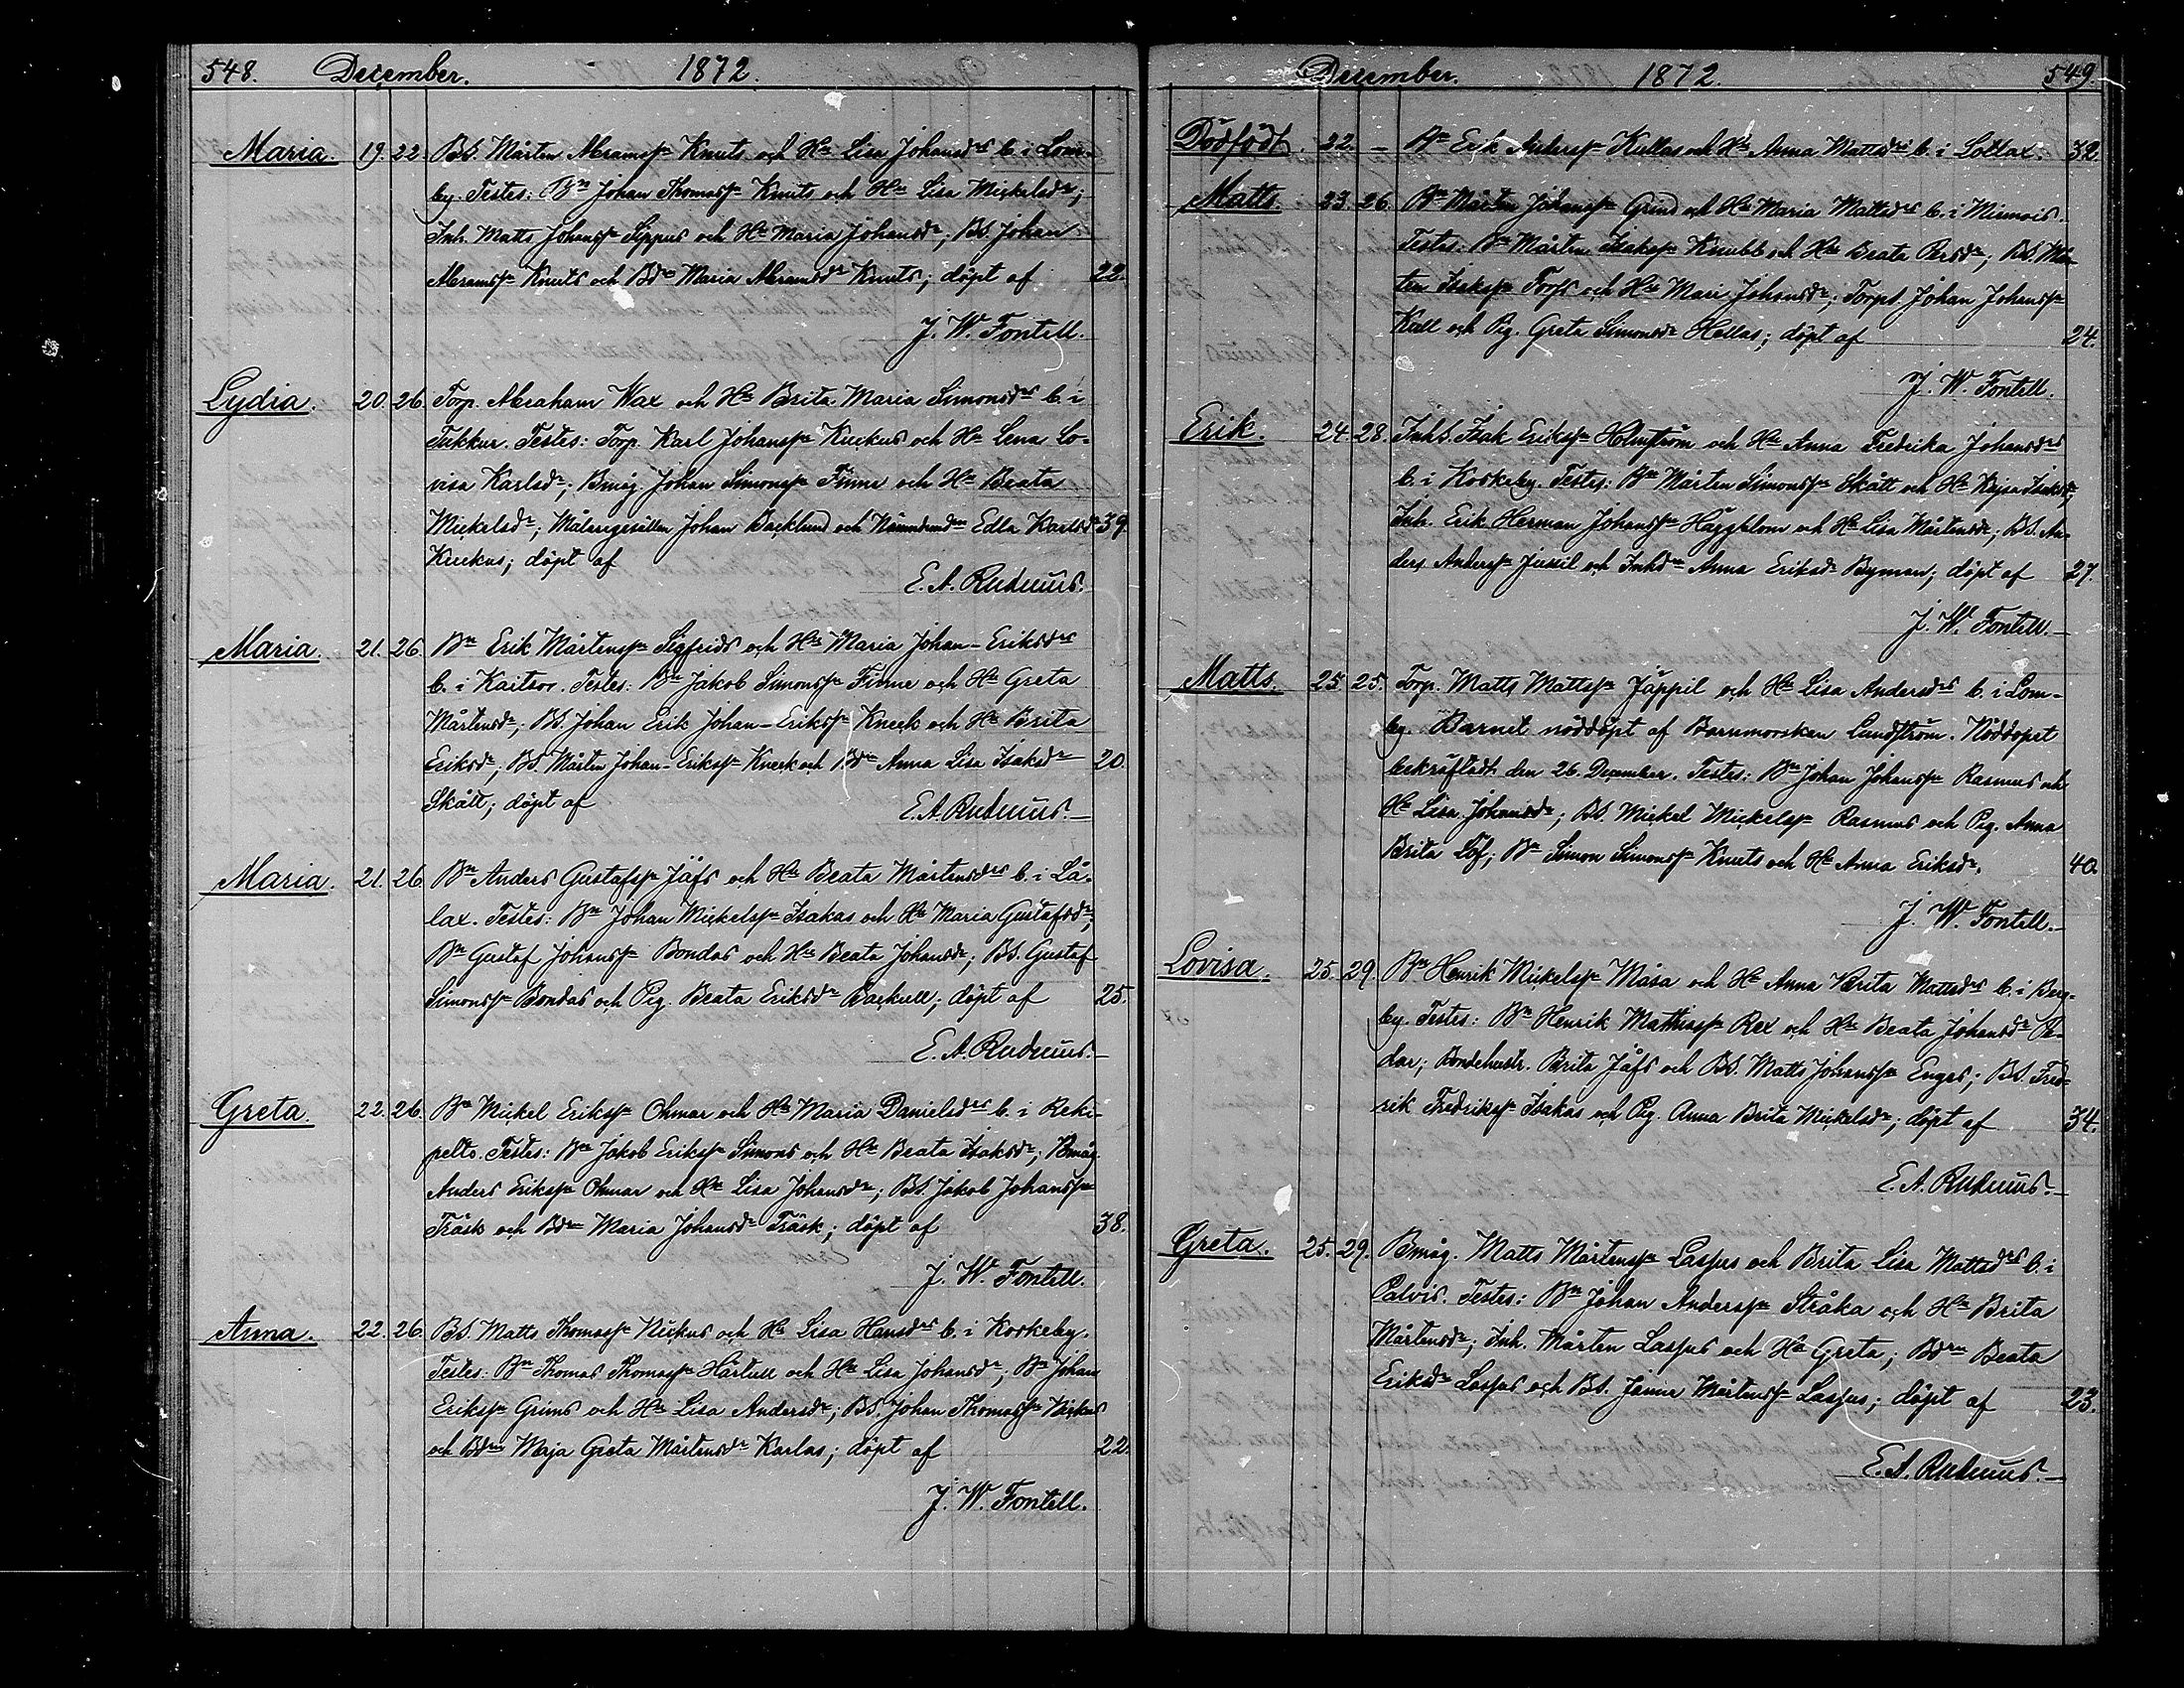 548. December. 1872.
Maria. 19. 22. BS. Mårten Abramss. Knuts och Hu Lisa Johansdrs b. i Lom-
by. Testes: Bn Johan Thomass. Knuts och Hu Lisa Mickelsdr;
Inh. Matts Johanss. Sippus och Hu Maria Johansdr; BS. Johan
Abramss. Knuts och Bdr Maria Abramsdr Knuts; döpt af 22.
J. W. Fontell.
Lydia. 20. 26. Torp. Abraham Wax och Hu Brita Maria Simonsdrs b. i
Tukkur. Testes: Torp. Karl Johanss. Kuckus och Hu Lena Lo-
visa Karlsdr; Bmåg Johan Simonss. Finne och Hu Beata
Mickelsdr; Målaregesällen Johan Backlund och Nämndemdrn Edla Karlsdr 39.
Kuckus; döpt af
E. A. Rudnäs.
Maria. 21. 26. Bn Erik Mårtenss. Sigfrids och Hu Maria Johan-Eriksdrs
b. i Kaitsor. Testes: Bn Jakob Simonss. Finne och Hu Greta
Mårtensdr; BS. Johan Erik Johan-Erikss. Kneck och Hu Brita
Eriksdr; BS. Mårten Johan-Erikss. Kneck och Bdr Anna Lisa Isaksdr 20.
Skått; döpt af E. A. Rudnäs.
Maria. 21. 26. Bn Anders Gustafss. Jåfs och Hu Beata Mårtensdrs b. i Lå-
lax. Testes: Bn Johan Mickelss. Isakas och Hu Maria Gustafsdr;
Bn Gustaf Johanss. Bondas och Hu Beata Johansdr; BS. Gustaf
Simonss. Bondas och Pig. Beata Eriksdr Backull; döpt af 25.
E. A. Rudnäs.
Greta. 22. 26. Bn Mickel Erikss. Ohmar och Hu Maria Danielsdrs b. i Reki-
pelto. Testes: Bn Jakob Erikss. Simons och Hu Beata Isaksdr; Bmåg.
Anders Erikss. Ohmar och Hu Lisa Johansdr; BS. Jakob Johanss.
Träsk och Bdr Maria Johansdr Träsk; döpt af 38.
J. W. Fontell.
Anna. 22. 26. BS. Matts Thomass. Nickus och Hu Lisa Hansdrs b. i Koskeby.
Testes: Bn Thomas Thomass. Hårtull och Hu Lisa Johansdr; Bn Johan
Erikss. Grims och Hu Lisa Andersdr; BS. Johan Thomass. Nickus
och Bdr Maja Greta Mårtensdr Karlas; döpt af 22.
J. W. Fontell.
December. 1872. 549.
Dödfödt. 22. – Bn Erik Anderss. Kullas och Hu Anna Mattsdrs b. i Lottax. 32.
Matts. 23. 26. Bn Mårten Johanss. Grind och Hu Maria Mattsdrs b. i Miemois.
Testes: Bn Mårten Isakss. Knubb och Hu Beata Persdr; BS. Mår-
ten Isakss. Torfs och Hu Mari Johansdr; Torps. Johan Johanss.
Kull och Pig. Greta Simonsdr Hellas; döpt af 24.
J. W. Fontell.
Erik. 24. 28. Inhs. Isak Erikss. Holmström och Hu Anna Fredrika Johansdrs
b. i Koskeby. Testes: Bn Mårten Simonss. Skått och Hu Kajsa Isaksdr;
Inh. Erik Herman Johanss. Häggblom och Hu Lisa Mårtensdr; BS. An-
ders Anderss. Jussil och Inhdr Anna Eriksdr Byman; döpt af 27.
J. W. Fontell.
Matts. 25. 25. Torp. Matts Mattss. Jåppil och Hu Lisa Andersdrs b. i Lom-
by. Barnet nöddöpt af Barnmorskan Lundström. Nöddopet
bekräftadt den 26. December. Testes: Bn Johan Johanss. Rasmus och
Hu Lisa Johansdr; BS. Mickel Mickelss. Rasmus och Pig. Anna
Brita Löf; Bn Simon Simonss. Knuts och Hu Anna Eriksdr. 40.
J. W. Fontell.
Lovisa. 25. 29. Bn Henrik Mickelss. Måsa och Hu Anna Brita Mattsdrs b. i Berg-
by. Testes: Bn Henrik Mathiass. Rex och Hu Beata Johansdr Pe-
dar; Bondehustr. Brita Jåfs och BS. Matts Johanss. Enges; BS. Fred-
rik Fredrikss. Isakas och Pig. Anna Brita Mickelsdr; döpt af 34.
E. A. Rudnäs.
Greta. 25. 29. Bmåg. Matts Mårtenss. Laspus och Brita Lisa Mattsdrs b. i
Palvis. Testes: Bn Johan Anderss. Stråka och Hu Brita
Mårtensdr; Inh. Mårten Laspus och Hu Greta; Bdr Beata
Eriksdr Laspus och BS. Jannie Mårtenss. Laspus; döpt af 23.
E. A. Rudnäs.